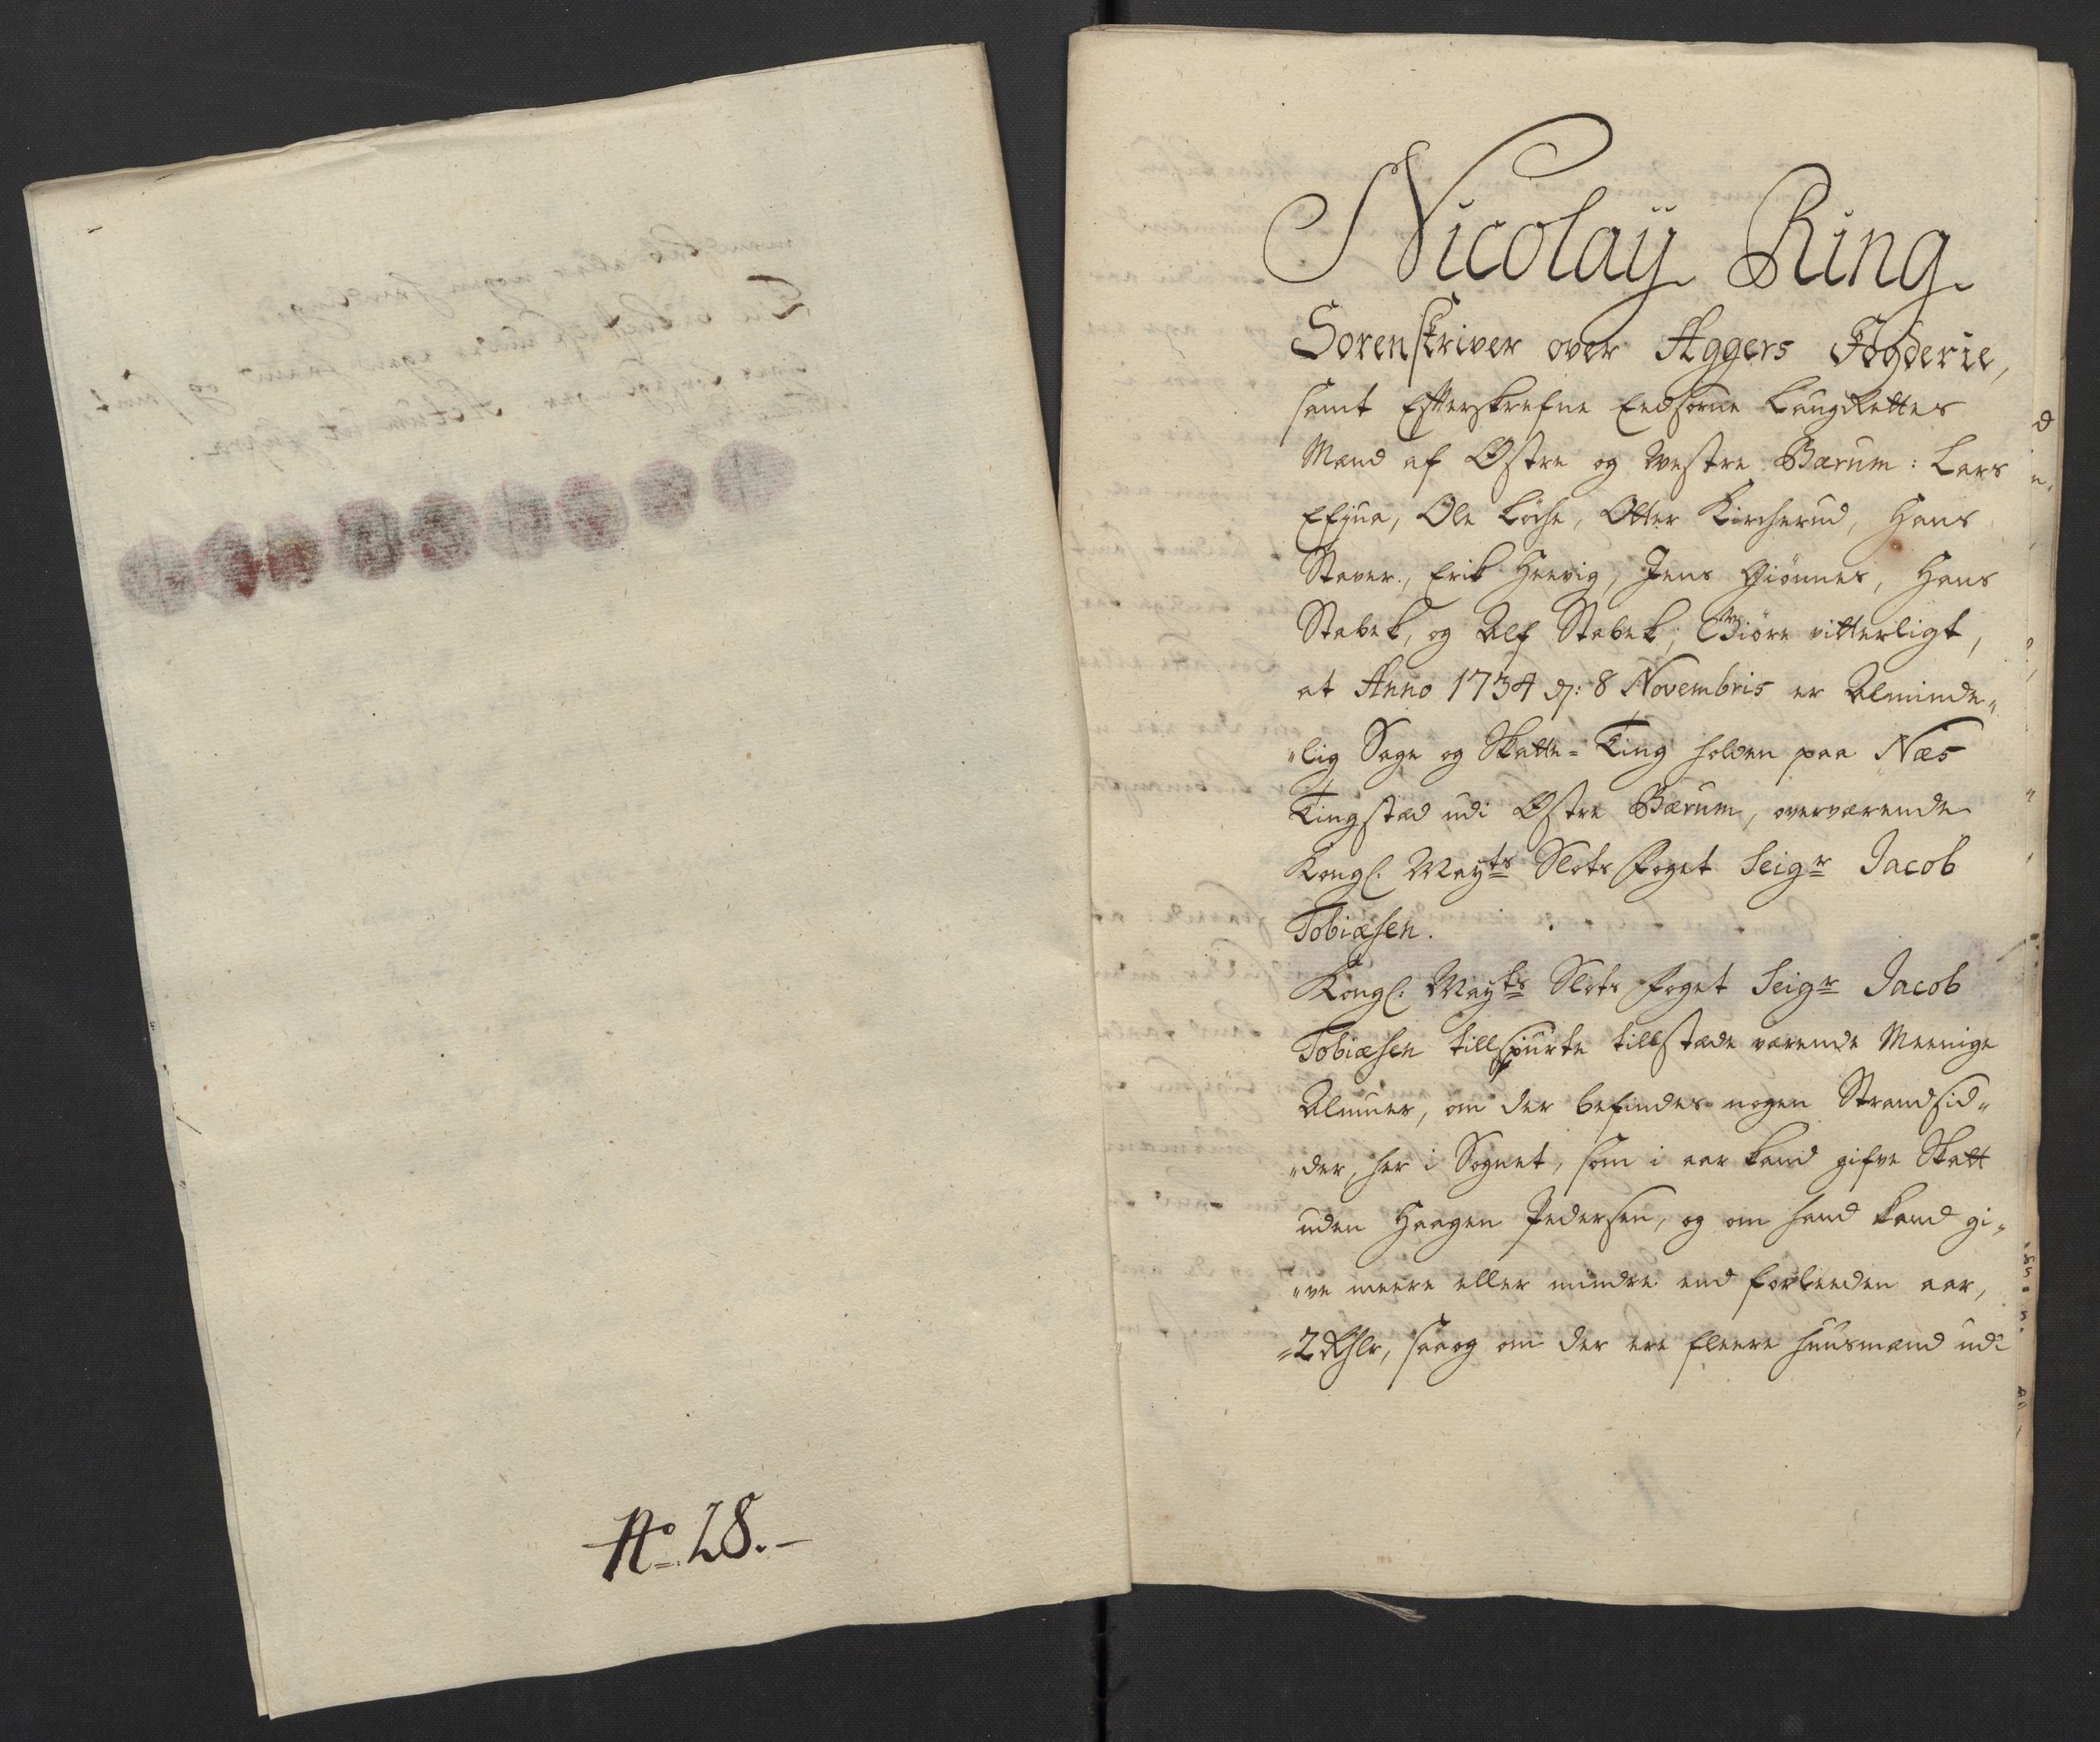 No 28.
Nicolaÿ Ring
Sorenskriver over Aggers Fogderie,
samt Efterskrefne Eedsorne LaugRettes
Mænd af Østre og Westre Bærum: Lars
Ole Løche, Otter Kircherud, Hans
Staver, Erik Høevig, Jens Giønnes, Hans
Stabek, og Alf Stabek; Giøre vitterligt,
at Anno 1734 d: 8 Novembris er Alminde„
„lig Sage og Skatte-Ting holden paa Næs
Tingstæd udi Østre Bærum, overværende
Kongl: Mayts Slots Foget Seigr Jacob
Tobiæsen.
Kongl: Mayts Slots Foget Seigr Jacob
Tobiæsen tillspurte tillstæde værende Meenige
Almue, om der befindes nogen Strandsid„
„der, her i Sognet, som i aar kand gifve Skatt
uden Haagen Pedersen, og om hand kand gi„
„ve meere eller mindre end forleeden aar,
2 Rhlr, saa og om der ere fleere Huusmænd udi